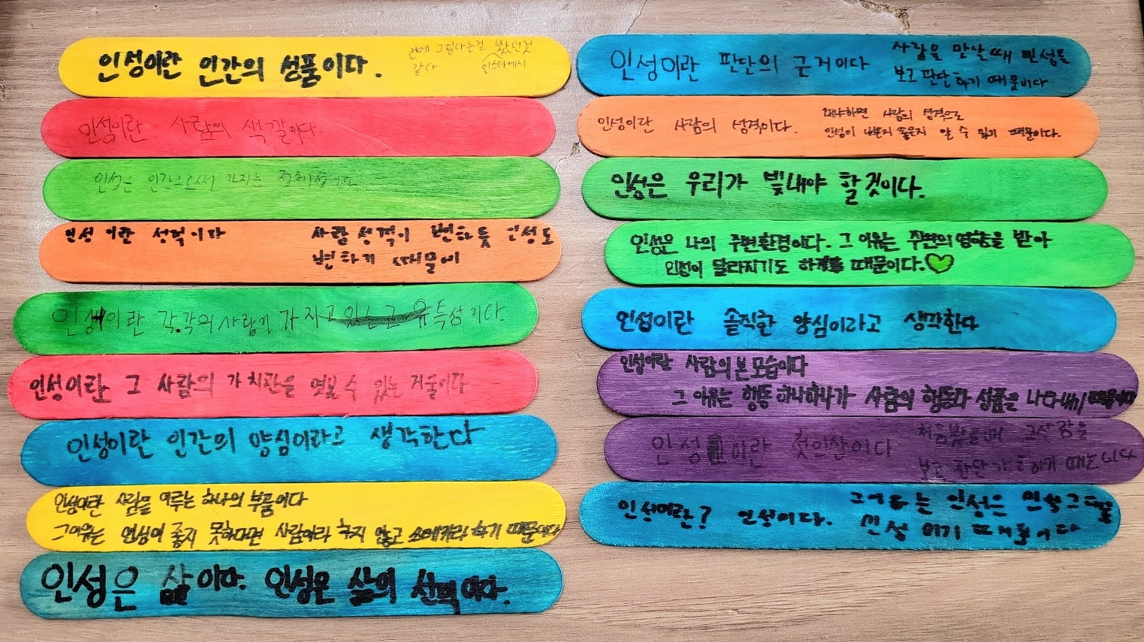 인성이란 인간의 성품이다.
전에 그렇다는걸 봤던것
같다 인스타에서
인성이란 사람의 색깔이다.
인성은 인간으로써 가지는
인성이란 성격이다
사람 성격이 변하듯 인성도
변하기 때문에
인성이란 각각의 사람이 가지고 있는 특성이다.
인성이란 그 사람의 가치관을 엿볼 수 있는 거울이다
인성이란 인간의 양심이라고 생각한다
인성이란 사람을 이루는 하나의 부품이다
그이유는 인성이 좋지 못하다면 사람이라 하지 않고 쓰레기라 하기 때문이다
인성은 삶이다. 인성은 삶의 선택이다.
인성이란 판단의 근거이다
사람을 만날때 인성을
보고 판단하기 때문이다
인성이란 사람의 성격이다.
왜냐하면 사람의 성격으로
인성이 나쁜지 좋은지 알 수 있기 때문이다.
인성은 우리가 빛내야 할것이다.
인성은 나의 주변환경이다. 그 이유는 주변의 영향을 받아
인성이 달라지기도 하기 때문이다.♡
인성이란 솔직한 양심이라고 생각한다
인성이란 사람의 본모습이다
그 이유는 행동 하나하나가 사람의 행동과 성품을 나타내기 때문이다
인성이란 첫인상이다
처음봤을때 그사람을
보고 판단가능하기 때문이다
인성이란? 인성이다.
그이유는 인성은 인성그대로
인성 이기 때문이다